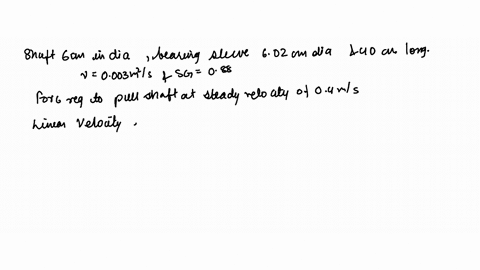 Shaft 6cm in dia , bearing sleeve 6.02 cm dia & 40 cm long.
ν = 0.003 m²/s & SG = 0.88
Force req to pull shaft at steady velocity of 0.4 m/s
Linear Velocity ,